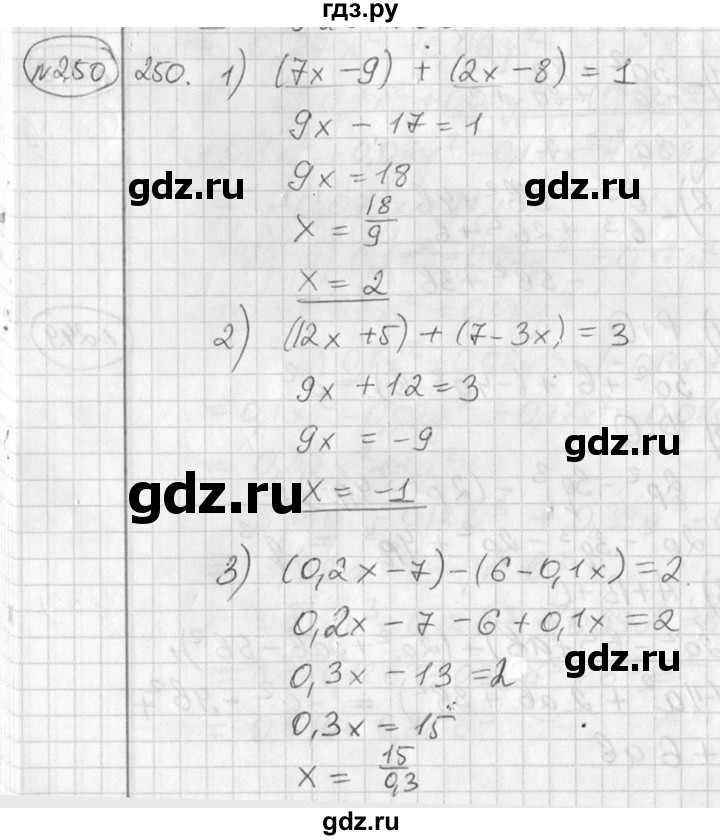 гдз.ру
№250 250. 1) (7x - 9) + (2x - 8) = 1
9x - 17 = 1
9x = 18
gdz.ru gdz.ru
x = 18/9
x = 2
2) (12x + 5) + (7 - 3x) = 3
9x + 12 = 3
9x = -9
gdz.ru
gdz.ru
x = -1
3) (0,2x - 7) - (6 - 0,1x) = 2
0,2x - 7 - 6 + 0,1x = 2
gdz.ru
0,3x - 13 = 2
0,3x = 15
x = 15/0,3
gdz.ru